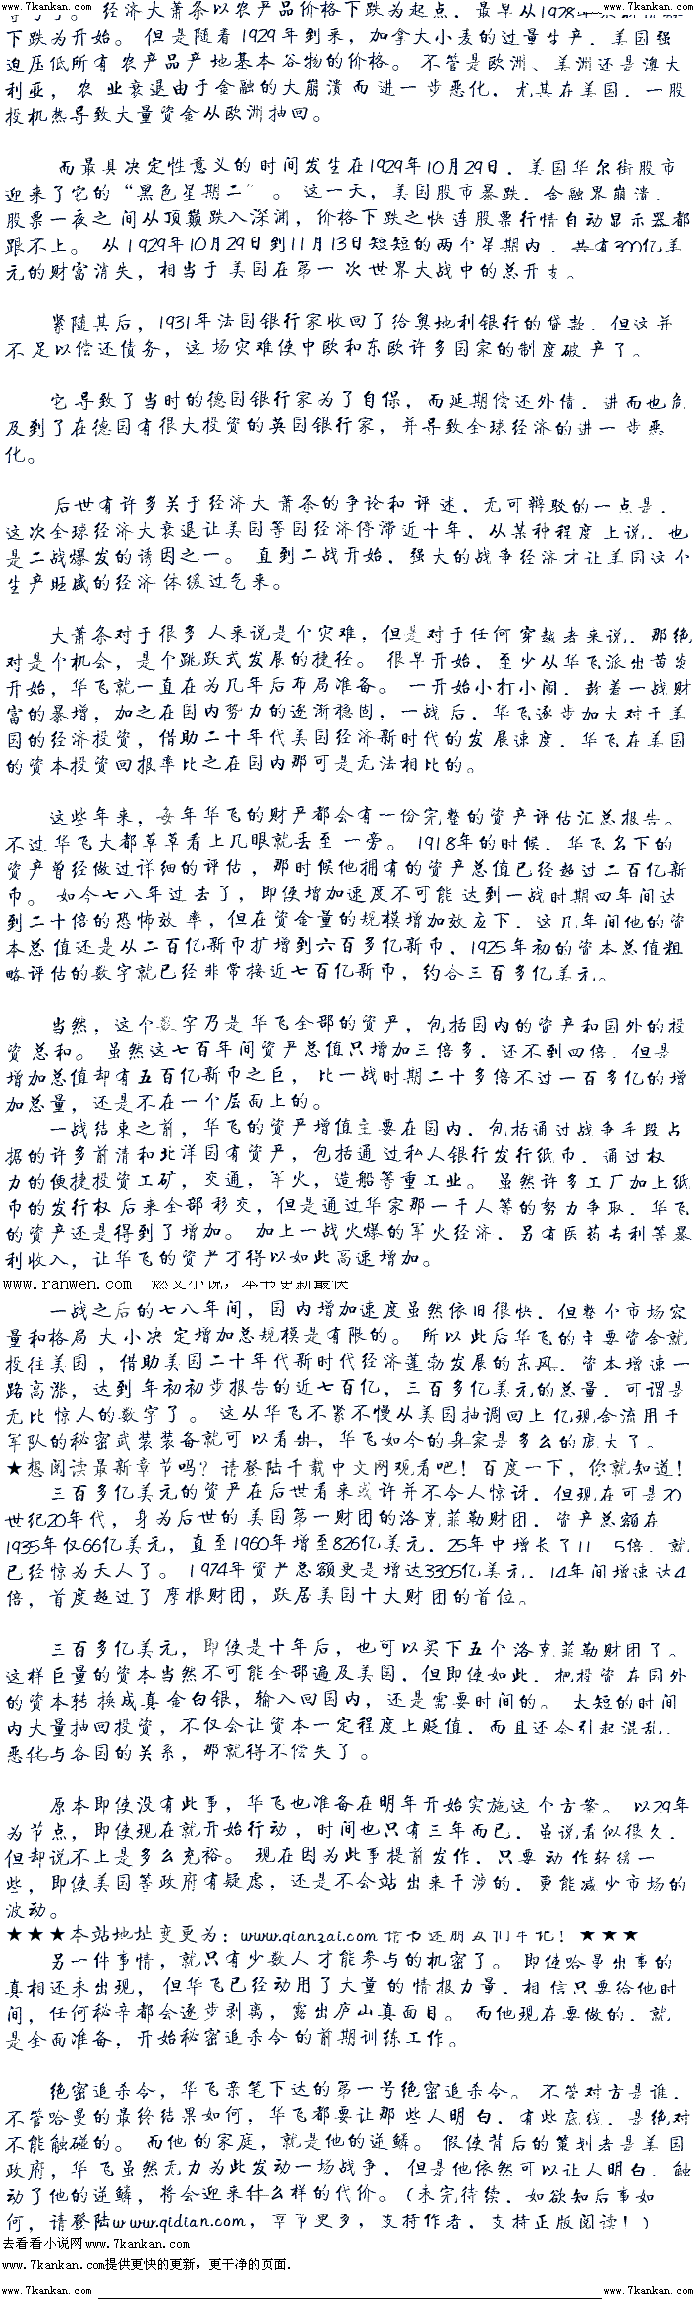 www.7kankan.com www.7kankan.com
经济大萧条以农产品价格下跌为起点，最早从1928年
下跌为开始。 但是随着1929年到来，加拿大小麦的过量生产，美国强
迫压低所有农产品产地基本谷物的价格。 不管是欧洲、美洲还是澳大
利亚， 农 业衰退由于金融的大崩溃而进一步恶化，尤其在美国，一股
投机热导致大量资金从欧洲抽回。
而最具决定性意义的时间发生在1929年10月29日，美国华尔街股市
迎来了它的“黑色星期二” 。 这一天，美国股市暴跌，金融界崩溃，
股票一夜之间从顶巅跌入深渊，价格下跌之快连股票行情自动显示器都
跟不上。 从1929年10月29日到11月13日短短的两个星期内，共有300亿美
元的财富消失，相当于美国在第一次世界大战中的总开支。
紧随其后，1931年法国银行家收回了给奥地利银行的贷款，但这并
不足以偿还债务，这场灾难使中欧和东欧许多国家的制度破产了。
它导致了当时的德国银行家为了自保，而延期偿还外债，进而也危
及到了在德国有很大投资的英国银行家，并导致全球经济的进一步恶
化。
后世有许多关于经济大萧条的争论和评述，无可辩驳的一点是，
这次全球经济大衰退让美国等国经济停滞近十年，从某种程度上说，也
是二战爆发的诱因之一。 直到二战开始，强大的战争经济才让美国这个
生产旺盛的经济体缓过气来。
大萧条对于很多人来说是个灾难，但是对于任何穿越者来说，那绝
对是个机会，是个跳跃式发展的捷径。 很早开始，至少从华飞派出黄炎
开始，华飞就一直在为几年后布局准备。 一开始小打小闹，趁着一战财
富的暴增，加之在国内势力的逐渐稳固，一战后，华飞逐步加大对于美
国的经济投资，借助二十年代美国经济新时代的发展速度，华飞在美国
的资本投资回报率比之在国内那可是无法相比的。
这些年来，每年华飞的财产都会有一份完整的资产评估汇总报告。
不过华飞大都草草看上几眼就丢至一旁。 1918年的时候，华飞名下的
资产曾经做过详细的评估，那时候他拥有的资产总值已经超过二百亿新
币。 如今七八年过去了，即使增加速度不可能达到一战时期四年间达
到二十倍的恐怖效率，但在资金量的规模增加效应下，这几年间他的资
本总值还是从二百亿新币扩增到六百多亿新币，1925年初的资本总值粗
略评估的数字就已经非常接近七百亿新币，约合三百多亿美元。
当然，这个数字乃是华飞全部的资产，包括国内的资产和国外的投
资总和。 虽然这七百年间资产总值只增加三倍多，还不到四倍，但是
增加总值却有五百亿新币之巨， 比一战时期二十多倍不过一百多亿的增
加总量，还是不在一个层面上的。
一战结束之前，华飞的资产增值主要在国内，包括通过战争手段占
据的许多前清和北洋国有资产，包括通过私人银行发行纸币，通过权
力的便捷投资工矿，交通，军火，造船等重工业。 虽然许多工厂加上纸
币的发行权后来全部移交，但是通过华家那一干人等的努力争取，华飞
的资产还是得到了增加。 加上一战火爆的军火经济，另有医药专利等暴
利收入，让华飞的资产才得以如此高速增加。
www.ranwen.com 燃文小说，本书更新最快
一战之后的七八年间，国内增加速度虽然依旧很快，但整个市场容
量和格局大小决定增加总规模是有限的。 所以此后华飞的主要资金就
投往美国，借助美国二十年代新时代经济蓬勃发展的东风，资本增速一
路高涨，达到年初初步报告的近七百亿，三百多亿美元的总量，可谓是
无比惊人的数字了。 这从华飞不紧不慢从美国抽调回上亿现金流用于
军队的秘密武装装备就可以看出，华飞如今的身家是多么的庞大了。
★想阅读最新章节吗？请登陆千载中文网观看吧！百度一下，你就知道！
三百多亿美元的资产在后世看来或许并不令人惊讶，但现在可是20
世纪20年代，身为后世的美国第一财团的洛克菲勒财团，资产总额在
1935年仅66亿美元，直至1960年增至826亿美元，25年中增长了11 5倍，就
已经惊为天人了。 1974年资产总额更是增达3305亿美元，14年间增速达4
倍，首度超过了摩根财团，跃居美国十大财团的首位。
三百多亿美元，即使是十年后，也可以买下五个洛克菲勒财团了。
这样巨量的资本当然不可能全部遍及美国，但即使如此，把投资在国外
的资本转换成真金白银，输入回国内，还是需要时间的。 太短的时间
内大量抽回投资，不仅会让资本一定程度上贬值，而且还会引起混乱，
恶化与各国的关系，那就得不偿失了。
原本即使没有此事，华飞也准备在明年开始实施这个方案。 以29年
为节点，即使现在就开始行动，时间也只有三年而已，虽说看似很久，
但却说不上是多么充裕。 现在因为此事提前发作，只要动作轻缓一
些，即使美国等政府有疑虑，还是不会站出来干涉的，更能减少市场的
波动。
★★★本站地址变更为：www.qianzai.com 请书迷朋友们牢记！★★★
另一件事情，就只有少数人才能参与的机密了。 即使哈曼出事的
真相还未出现， 但华飞已经动用了大量的情报力量，相信只要给他时
间，任何秘辛都会逐步剥离，露出庐山真面目。 而他现在要做的，就
是全面准备，开始秘密追杀令的前期训练工作。
绝密追杀令，华飞亲笔下达的第一号绝密追杀令。 不管对方是谁，
不管哈曼的最终结果如何，华飞都要让那些人明白，有些底线，是绝对
不能触碰的。 而他的家庭，就是他的逆鳞。 假使背后的策划者是美国
政府，华飞虽然无力为此发动一场战争，但是他依然可以让人明白，触
动了他的逆鳞，将会迎来什么样的代价。(未完待续，如欲知后事如
何，请登陆www.qidian.com，章节更多，支持作者，支持正版阅读！)
去看看小说网www.7kankan.com
www.7kankan.com提供更快的更新，更干净的页面.
www.7kankan.com www.7kankan.com